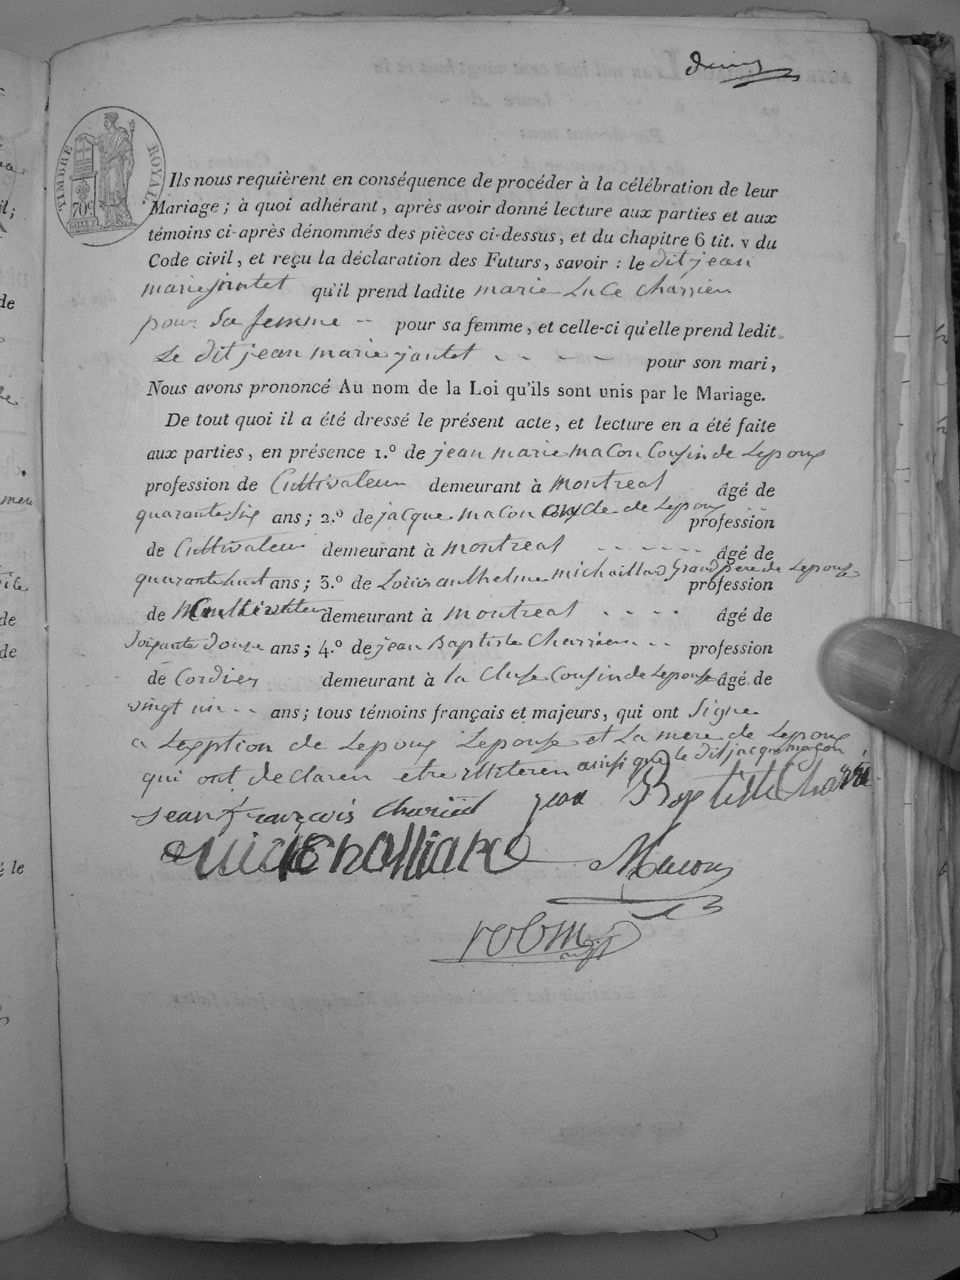 TIMBRE ROYAL.
70c
Ils nous requièrent en conséquence de procéder à la célébration de leur
Mariage; à quoi adhérant, après avoir donné lecture aux parties et aux
témoins ci-après dénommés des pièces ci-dessus, et du chapitre 6 tit. v du
Code civil, et reçu la déclaration des Futurs, savoir : le dit jean
marie jantet qu'il prend ladite marie Luce Charrieu
pour Sa femme -- pour sa femme, et celle-ci qu'elle prend ledit
Le dit jean marie jantet - - - - pour son mari,
Nous avons prononcé Au nom de la Loi qu'ils sont unis par le Mariage.
De tout quoi il a été dressé le présent acte, et lecture en a été faite
aux parties, en présence 1.º de jean marie macon Cousin de Lepoux
profession de Cultivateur demeurant à montreal âgé de
quarante Six ans; 2.º de jacque macon oncle de Lepoux profession
de Cultivateur demeurant à montreal - - - - - - âgé de
quarante huit ans; 3.º de Louis anthelme michaillard Grand pere de Lepouse profession
de Cultivateur demeurant à montreal - - - - âgé de
Soixante douze ans; 4.º de jean Baptiste Charrieu - - profession
de Cordier demeurant à la Cluse Cousin de Lepouse âgé de
vingt un - - ans; tous témoins français et majeurs, qui ont Signe
a Lexption de Lepoux Lepouse et La mere de Lepoux
qui ont declaren etre illiteren ainsi que le dit jacque macon
jean françois jean Baptiste
Macon